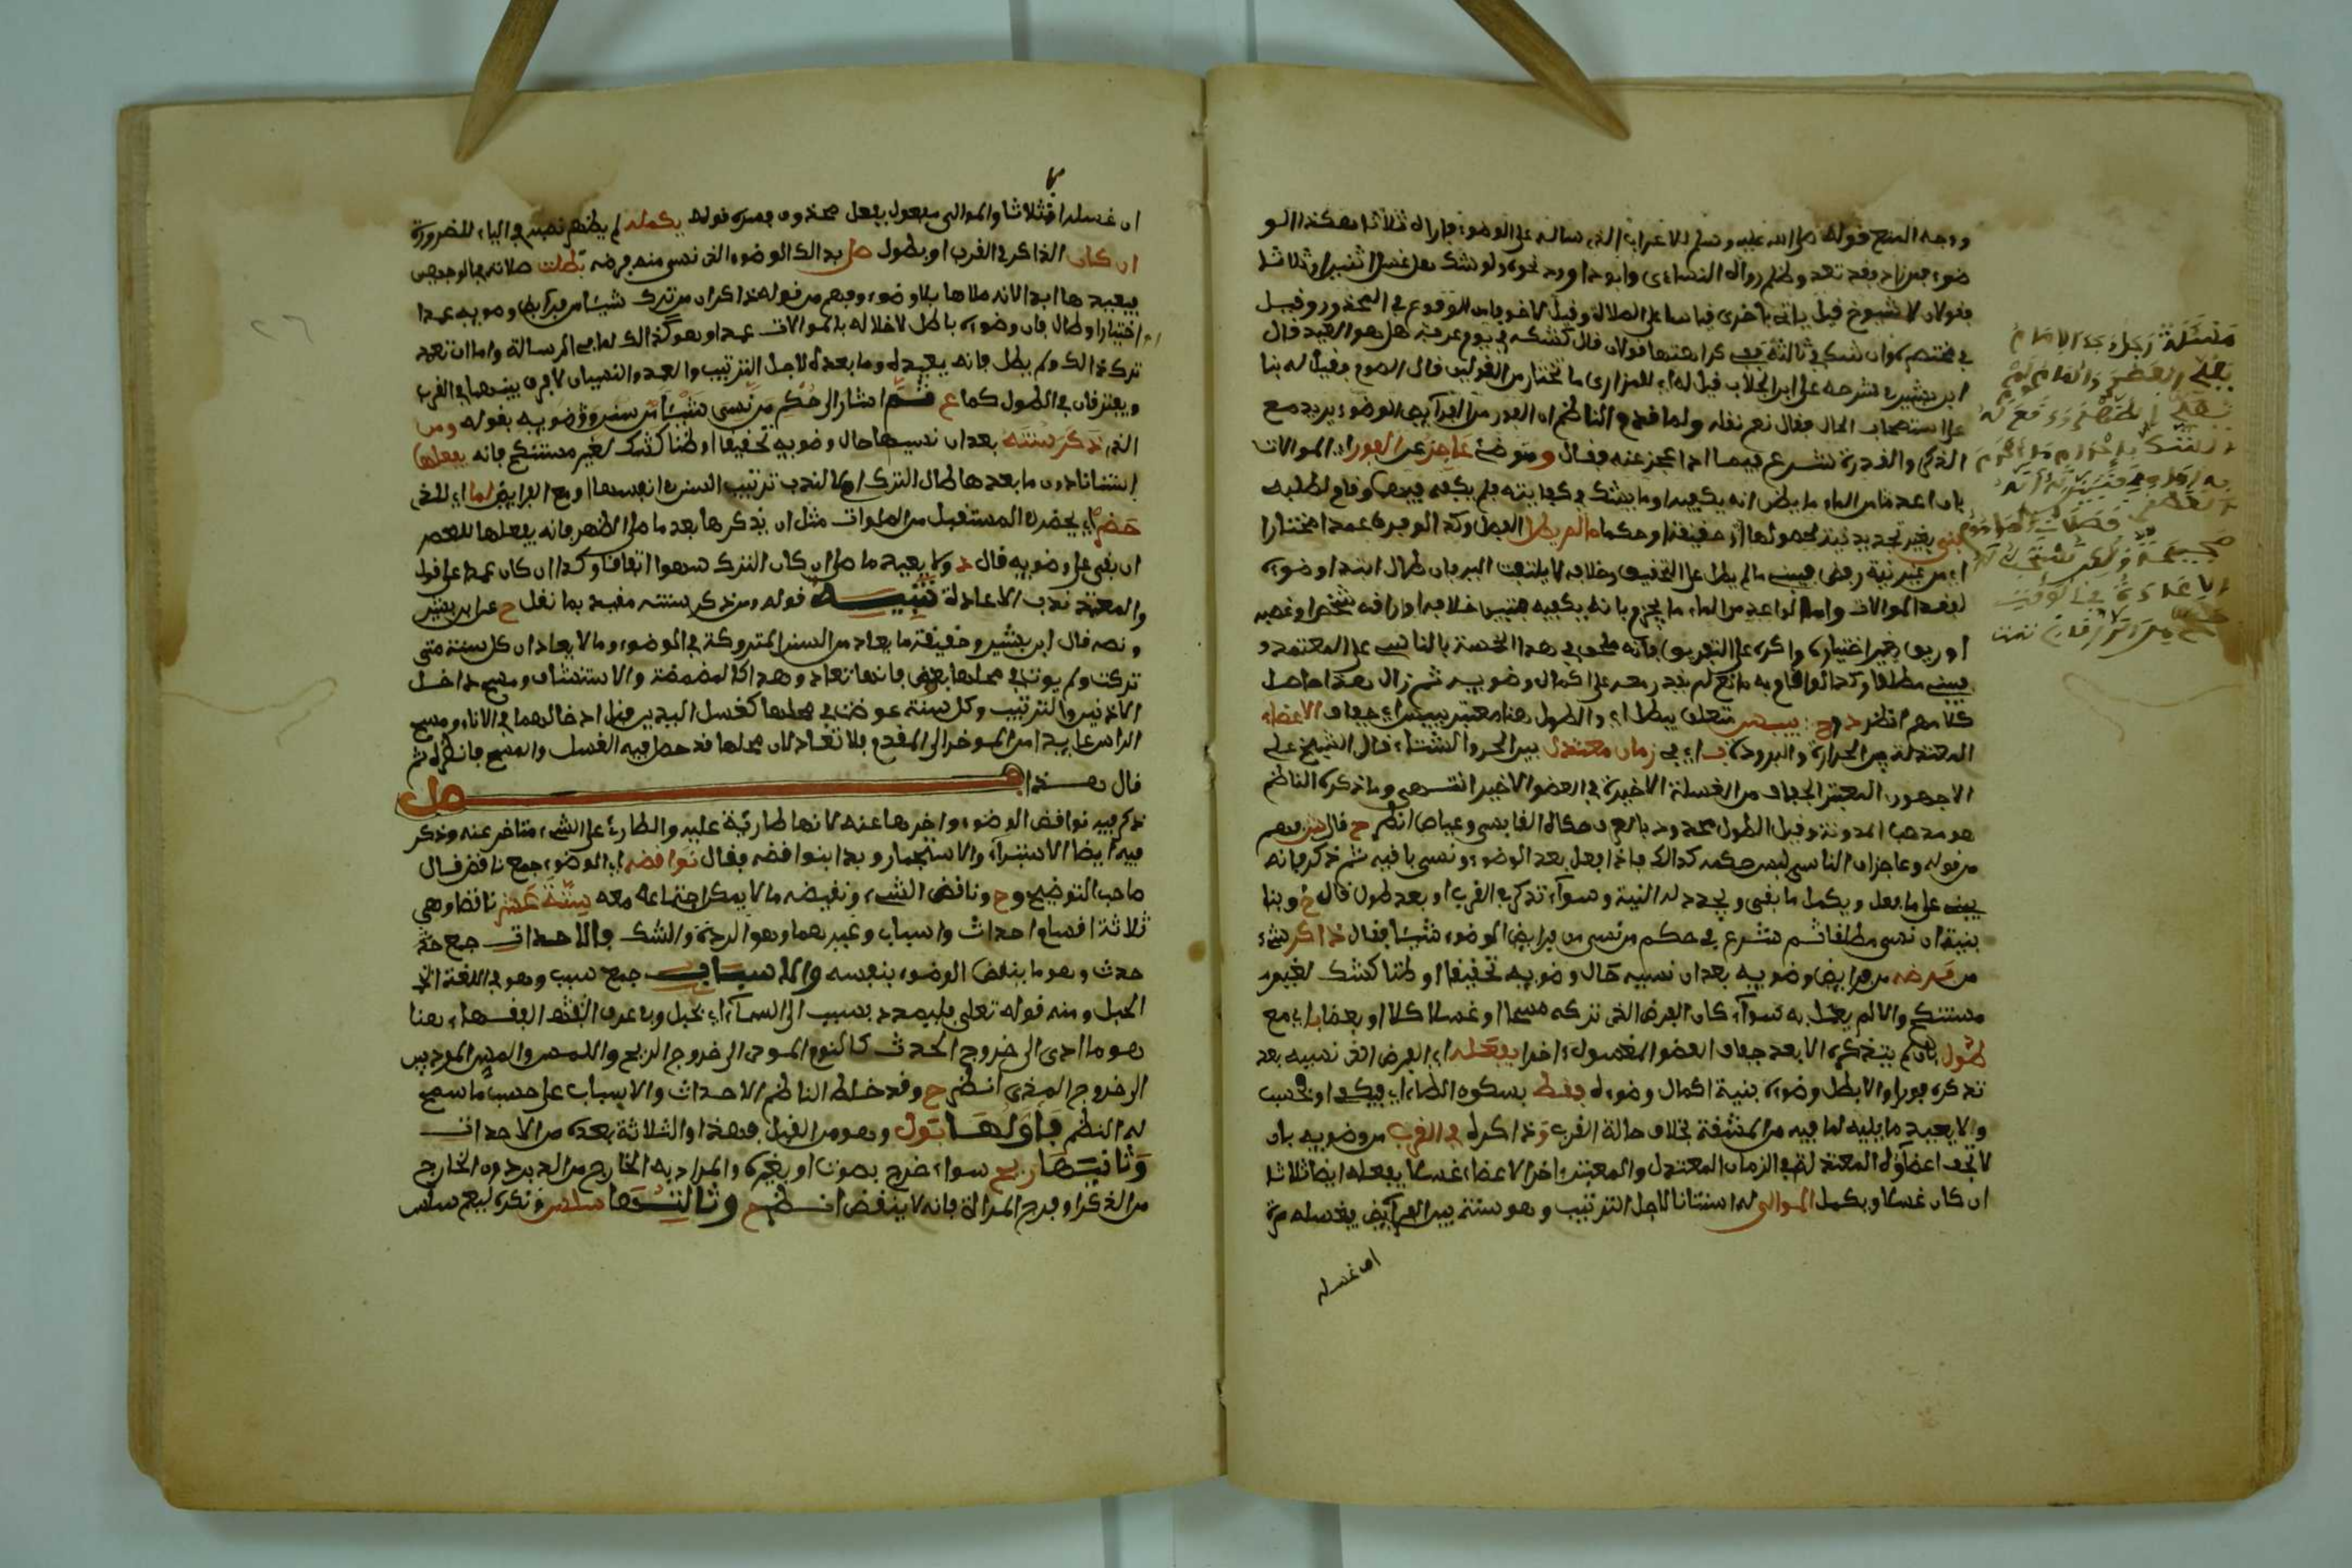 ووجه المنع قوله صلى الله عليه وسلم للاعرابي الذي ساله على الوضوء فاراه ثلاثا هكذا الو
ضوء فمن زاد فقد تعدى وظلم رواه النساءي وابو داوود نحوه ولو شك هل غسل اثنتين او ثلاثا
فقولان لا شيوخ فيل ياتي باخرى قياسا على الصلاة وقيل لا خوفا من الوقوع في المحذور وقيل
في مختصره وان شك في ثالثة ففي كراهتها قولان قال كشكه في يوم عرفة هل هو العيد قال
ابن بشير في شرحه على ابن الجلاب قيل له اي للمزاري ما تختار من القولين قال الصوم فقيل له بنا
على استصحاب الحال فقال نعم نقله ولما قدم الناظم ان الفور من الفرايض الوضوء يريد مع
الذكر والقدرة شرع فيما اذا عجز عنه فقال ومتوضئ عاجز عن الفور اي الموالات
بان اعد من الماء ما يظن انه يكفيه او ما يشك في كفايته فلم يكفه فيهما وقام لطلبه
بنى بغير تجديد نية لحصولها حقيقة او حكما ما لم يطل الفصل وكذا لو فرق عمدا مختارا
اي من غير نية رفض فيبني ما لم يطل على التحقيق وخلافه لا يلتفت اليه فان طال ابتدا وضوءه
لفقد الموالات واما لو اعد من الماء ما يجزم بانه يكفيه فتبين خلافه او اراقه شخص او غصبه
او ريق بغير اختياره واكره على التفريق فانه ملحق في هذا الخمسة بالناسي على المعتمد و
يبني مطلقا وكذا لو قام به مانع لم يقدر معه على اكمال وضويه ثم زال هذا حاصل
كلامهم انظر د و ح ييبس متعلق بيطل اي والطول هنا معتبر بيبس اي جفاف الاعضاء
المعتدلة بين الحرارة والبرودة في اي في زمان معتدل بين الحر والشتاء قال الشيخ علي
الاجهوري المعتبر الجفاف من الغسلة الاخيرة في العضو الاخير انتهى وما ذكره الناظم
هو مذهب المدونة وقيل الطول محدود بالعرف حكاه القابسي وعياض انظر ح قال من فهم
من قوله وعاجز ان الناسي ليس حكمه كذالك فاذا فعل بعد الوضوء ونسي باقيه ثم ذكر فانه
يبني على ما فعل ويكمل ما بقي ويجدد له النية وسواء تذكر في القرب او بعد طول قال خ وبنا
بنية ان نسي مطلقا ثم شرع في حكم من نسي من فرايض الوضوء شيئا فقال ذاكر شيء
من فرضه من فرايض وضويه بعد ان نسيه حال وضويه تحقيقا او ظنا كشك لغير
مستنكح والا لم يعمل به سواء كان الفرض الذي تركه مسحا او غسلا كلا او بعضا بـ اي مع
طول بان لم يتذكره الا بعد جفاف العضو المغسول اخرا يفعله اي الفرض الذي نسيه بعد
تذكره فورا والا بطل وضوءه بنية اكمال وضوءه فقط بسكون الطاء اي فيكفي او فحسب
ولا يعيد ما يليه لما فيه من المشقة بخلاف حالة القرب وذاكره في القرب من وضويه بان
لا تجف اعضاؤه المعتدلة في الزمان المعتدل والمعتبر اخر الاعضاء غسلا يفعله ايضا ثلاثا
ان كان غسلا ويكمل الموالي له استنانا لاجل الترتيب وهو سنة بين الفرايض يغسله مرة
ان غسله
مسئلة رجل وجد الامام
يصلي العصر والمام لم
ان غسله او ثلاثا والموالي مفعول بفعل محذوف يفسره قوله يكمله لم يظهر نصبه في الياء للضرورة
ان كان الذاكر في القرب او بطول صلى بذالك الوضوء الذي نسي منه فرضه بطلت صلاته في الوجهين
فيعيدها ابدا لانه صلاها بلا وضوء وفهم من قوله ذاكر ان من ترك شيئا من فرايض وضويه عمدا
اختيارا وطال فان وضوءه باطل لاخلاله بالموالات عمدا وهو كذالك لما في الرسالة واما ان تعمد
ترك ذالك ولم يطل فانه يعيده وما بعده لاجل الترتيب والعمد والنسيان لا فرق بينهما في القرب
ويفترقان في الطول كما ع ثم اشار الى حكم من نسي شيئا من سنن وضويه بقوله ومن
الذي ذكر سنته بعد ان نسيها حال وضويه تحقيقا او ظنا كشك لغير مستنكح فانه يفعلها
استنانا دون ما بعدها طال الترك او لا لندب ترتيب السنن في انفسها او مع الفرايض لما اي للذي
حضر اي يحضره المستقبل من الصلوات مثل ان يذكرها بعد ما صلى الظهر فانه يفعلها للعصر
ان بقي على وضويه قال د ولا يعيد ما صلى ان كان الترك سهوا اتفاقا وكذا ان كان عمدا على قول
والمعتمد ندب الاعادة تنبيه قوله ومن ذكر سنته مقيد بما نقل ح عن ابن بشير
ونصه قال ابن بشير وحقيقة ما يعاد من السنن المتروكة في الوضوء وما لا يعاد ان كل سنة متى
تركت ولم يوت في محلها بعوض فانها تعاد وهذا كالمضمضة والاستنشاق ومسح داخل
الاذنين والترتيب وكل سنة عوض في محلها كغسل اليدين قبل ادخالهما في الاناء ومسح
الراس عايدا من الموخر الى المقدم فلا تعاد لان محلها قد حصل فيه الغسل والمسح فانظره ثم
قال هذا فصل
ذكر فيه نواقض الوضوء واخرها عنه لانها طارئة عليه والطارئ على الشيء متاخر عنه وذكر
فيه ايضا الاستبراء والاستجمار وبدا بنواقضه فقال نواقضه اي الوضوء جمع ناقض قال
صاحب التوضيح و ح وناقض الشيء ونقيضه ما لا يمكن اجتماعه معه ستة عشر ناقضا وهي
ثلاثة اقسام احداث واسباب وغيرهما وهو الردة والشك والاحداث جمع حد
حدث وهو ما ينقض الوضوء بنفسه والاسباب جمع سبب وهو في اللغة
الحبل ومنه قوله تعلى فليمدد بسبب الى السماء اي بحبل وفي عرف الفقهاء هنا
هو ما ادى الى خروج الحدث كالنوم المودي الى خروج الريح واللمس والمس الموديين
الى خروج المذي انظر ح وقد خلط الناظم الاحداث والاسباب على حسب ما سمح
له النظم فاولها بول وهو من القبل فهذا والثلاثة بعده من الاحداث
وثانيها ريح سواء خرج بصوت او بغيره والمراد به الخارج من الدبر دون الخارج
من الذكر او فرج المراة فانه لا ينقض انظر ح وثالثها سلس ونكره ليعم سلس